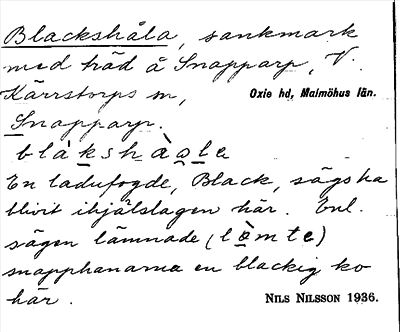 Blackshåla, sankmark
med träd å Snapparp, V.
Kärrstorps sn, Oxie hd, Malmöhus län.
Snapparp.
blàkshàọle
En ladufogde, Black, sägs ha
blivit ihjälslagen här. Enl.
sägen lämnade (lèmte)
snapphanarna en blackig ko
här. NILS NILSSON 1936.